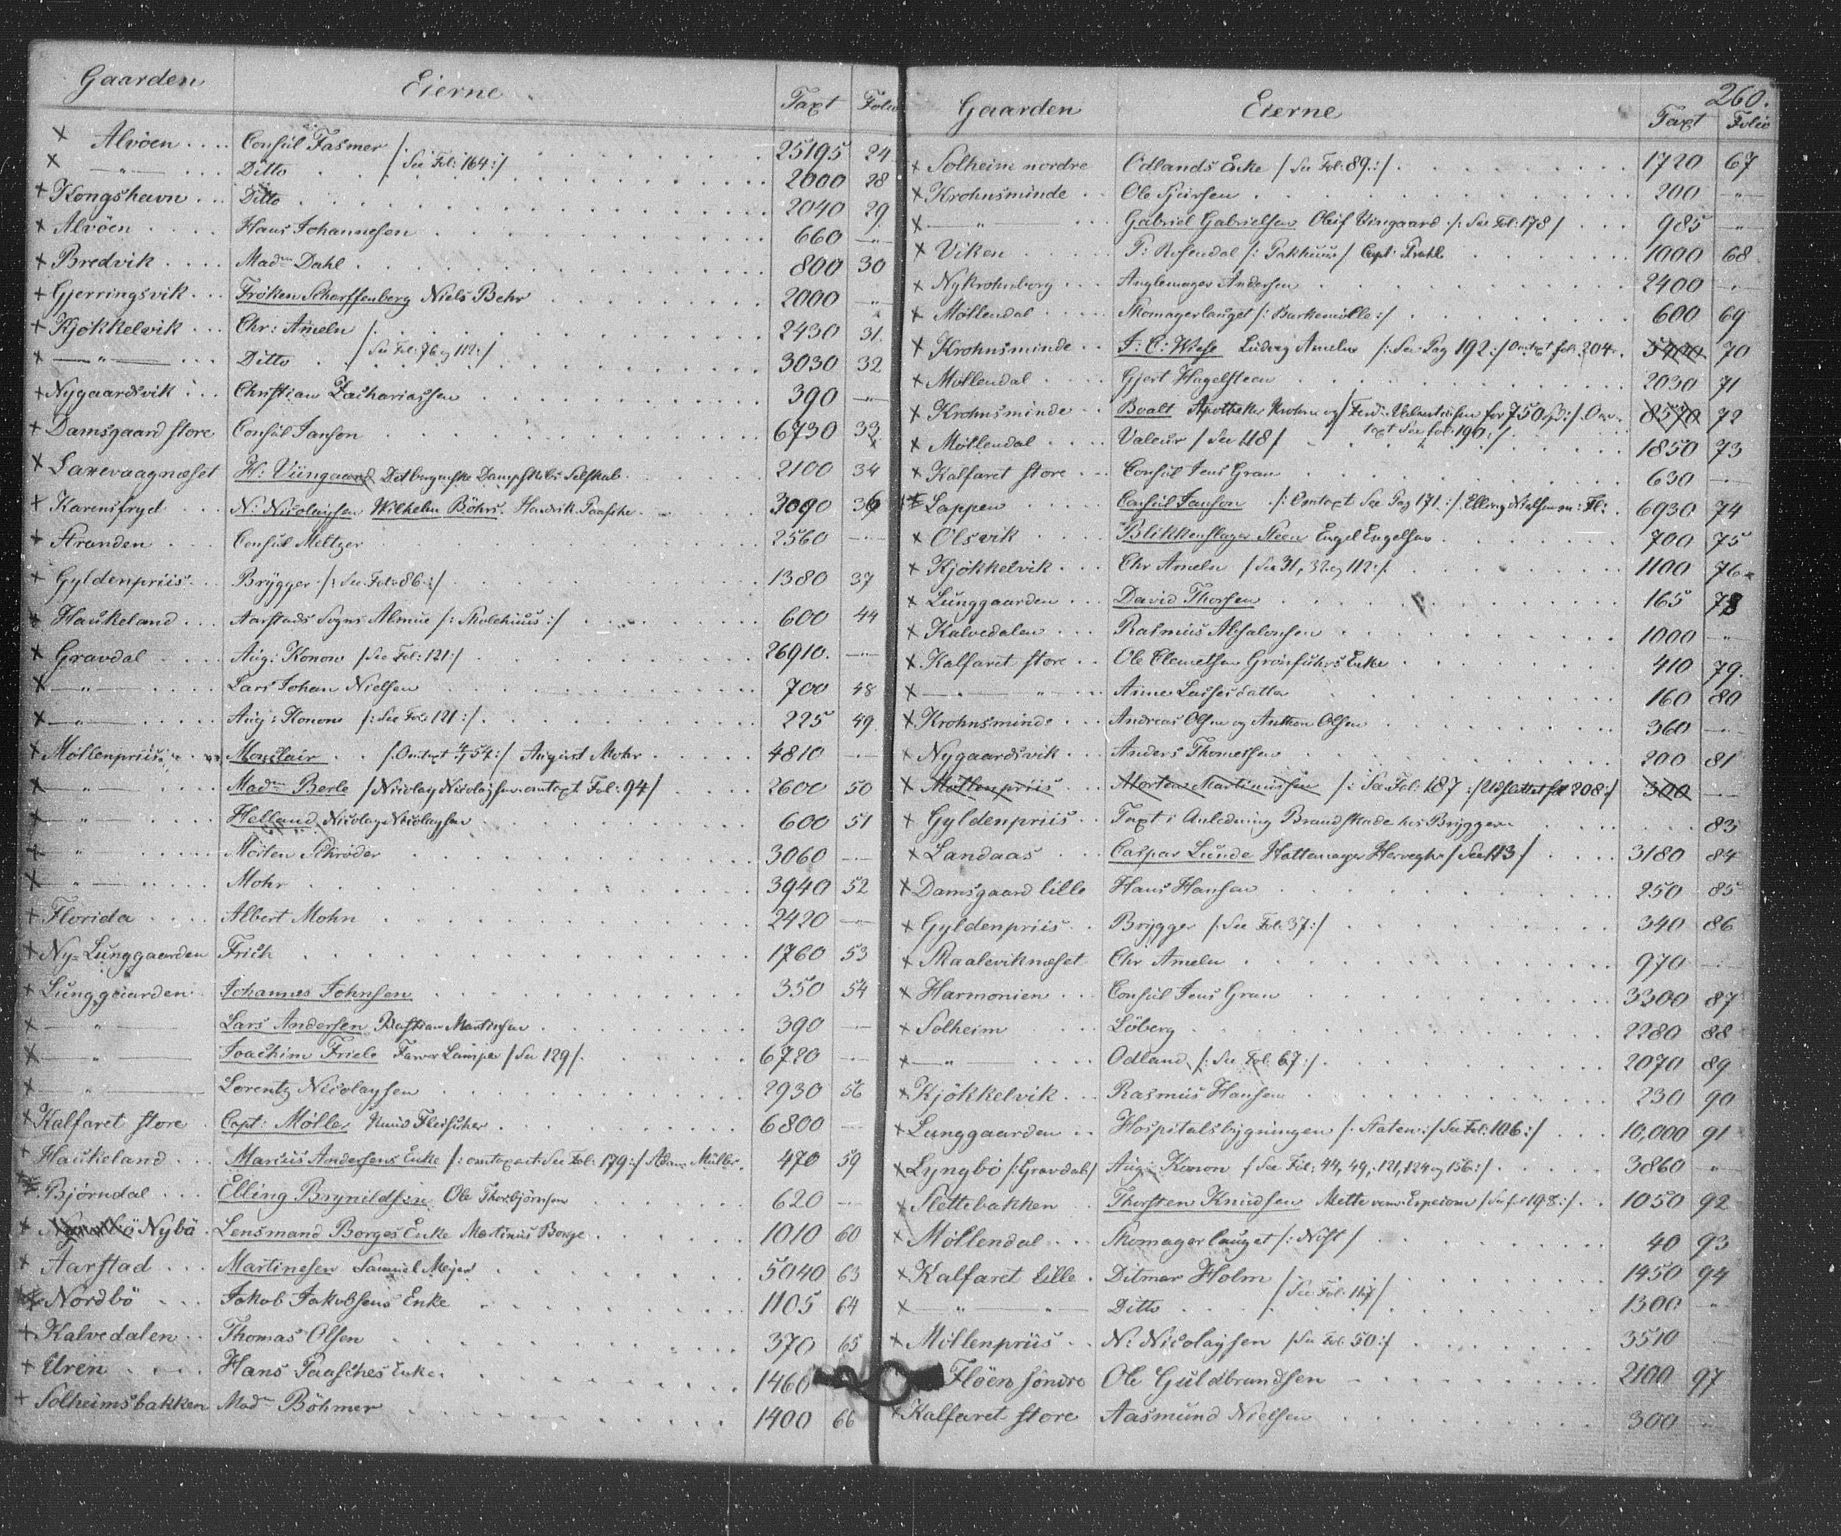 Gaarden Eierne Taxt Folio
Alvöen Consúl Fasmer 25195 24
—"— Ditto /See Fol: 164:/ 2000 28
Kongshavn Ditto 2040 29
Alvöen Hans Johannesen 660 —"—
Bredvik Madm Dahl 800 30
Gjerringsvik Fröken Scharffenberg Niels Behr 2000 —"—
Kjökkelvik Chr: Ameln 2430 31
—"— Ditto /See Fol: 76 og 112:/ 3030 32
Nygaardsvik Christian Zachariassen 390 —"—
Damsgaard store Consúl Janson 6730 33
Laxevaagnæset H: Viingaard Det bergenske Dampskibs Selskab 2100 34
Karensfryd N: Nicolaysen Wilhelm Böhrs. Hendrik Paasche 3090 36
Stranden Consúl Meltzer 2560 —"—
Gyldenpriis Brÿgger /: See Fol: 86:/ 1380 37
Haúkeland Aarstads Sogns Almúe /: Skolehúús:/ 600 44
Gravdal Aúg: Konow /See Fol: 121:/ 26910 —"—
—"— Lars Johan Nielsen 700 48
—"— Aúg: Konow /: See Fol: 121:/ 225 49
Möllenpriis Monclair /: Omtaxt 54:/ Aúgúst Mohr 4810 —"—
—"— Madm Berle /Nicolay Nicolaysen omtaxt Fol: 94/ 2600 50
—"— Helland Nicolay Nicolaysen 600 51
—"— Morten Schröder 3060 —"—
—"— Mohr 3940 52
Florida Albert Mohn 2420 —"—
Ny-Lúnggaarden Frich 1760 53
Lúnggaarden Johannes Johnsen 350 54
—"— Lars Andersen Bastian Martinsen 390 —"—
—"— Joachim Friele Farver Lampe /See 129/ 6720 —"—
—"— Lorentz Nicolaysen 2930 56
Kalfaret store Capt: Möller Knúd Fleischer 6800 —"—
Haúkeland Marcús Andersens Enke /: omtaxeret See Fol: 179:/ Müller 470 59
Björndal Elling Brynildsen Ole Thorbjörnsen 620 —"—
Nybö Lensmand Borges Enke Martinús Borge 1010 60
Aarstad Martinesen Samúel Mejer 5040 63
Nordbö Jakob Jakobsens Enke 1105 64
Kalvedalen Thomas Olsen 370 65
Úren Hans Paasches Enke 1460
Solheimsbakken Madm Böhmer 1400 66
260.
Gaarden Eierne Taxt Folio
Solheim nordre Odlands Enke /See Fol: 89:/ 1720 67
Krohnsminde Ole 200 —"—
—"— Gabriel Gabrielsen Olúf Viingaard /: See Fol: 178/ 985 —"—
Viken P: Rosendal /: Pakhúús/ Capt: Prahl 1000 68
Nykrohnborg Anglemager Andersen 2400 —"—
Möllendal Skomagerlaúget /: Barkemölle:/ 600 69
Krohnsminde J: C: Wiese Lúdvig Ameln /: See Pag 192:/ Omtaxt fol: 204 5400 70
Möllendal Gjert Hagelsteen 2030 71
Krohnsminde Boalt Apotheker Krohn og for 750 spd:/ Om- 8570 72
taxt See fol: 190:/
Möllendal Valeur /See 118/ 1850 73
Kalfaret store Consúl Jens Gran 630 —"—
Lappen Consúl Janson /: Omtaxt See Pag 171:/ Elling 6930 74
Olsvik Blikkenslager Steen Engel Engelsen 700 75
Kjökkelvik Chr Ameln /See 31, 32 og 112:/ 1100 76
Lúnggaarden David Thorsen 165 78
Kalvedalen Rasmús Absalonsen 1000 —"—
Kalfaret store Ole Clemetsen Enke 410 79
—"— Anne Lassesdatter 160 80
Krohnsminde Andreas Olsen og Anthon Olsen 360 —"—
Nygaardsvik Anders Thomessen 200 81
Möllenpriis Morten Martinússen /: See Fol: 187:/ Udskattet fol 208:/ 300 —
Gyldenpriis Taxt i Anledning Brandskade hos Brÿggern 83
Landaas Caspar Lúnde Hattemager Herwegh /See 113/ 3180 84
Damsgaard lille Hans Hansen 250 85
Gyldenpriis Brÿgger /: See Fol: 37:/ 340 86
Skaaleviknæset Chr Ameln 970 —"—
Harmonien Consúl Jens Gran 3300 87
Solheim Löberg 2280 88
—"— Odland /: See Fol: 67:/ 2070 89
Kjökkelvik Rasmús Hansen 230 90
Lúnggaarden Hospitalsbygningen /: Staten:/ See Fol: 106:/ 10,000 91
Lyngbö /: Gravdal/ Aúg: Konow /See Fol: 44, 49, 121, 124 og 156:/ 3860 —"—
Slettebakken Thorsten Knúdsen Mette /See fol 198:/ 1050 92
Möllendal Skomagerlaúget /: Nöst/ 40 93
Kalfaret lille Ditmar Holm 1450 94
—"— Ditto /See Fol: 117/ 1300 —"—
Möllenpriis N: Nicolaysen /See Fol: 50:/ 3510
Flöen söndre Ole Gúldbrandsen 2100 97
Kalfaret store Aasmúnd Nielsen 300 —"—